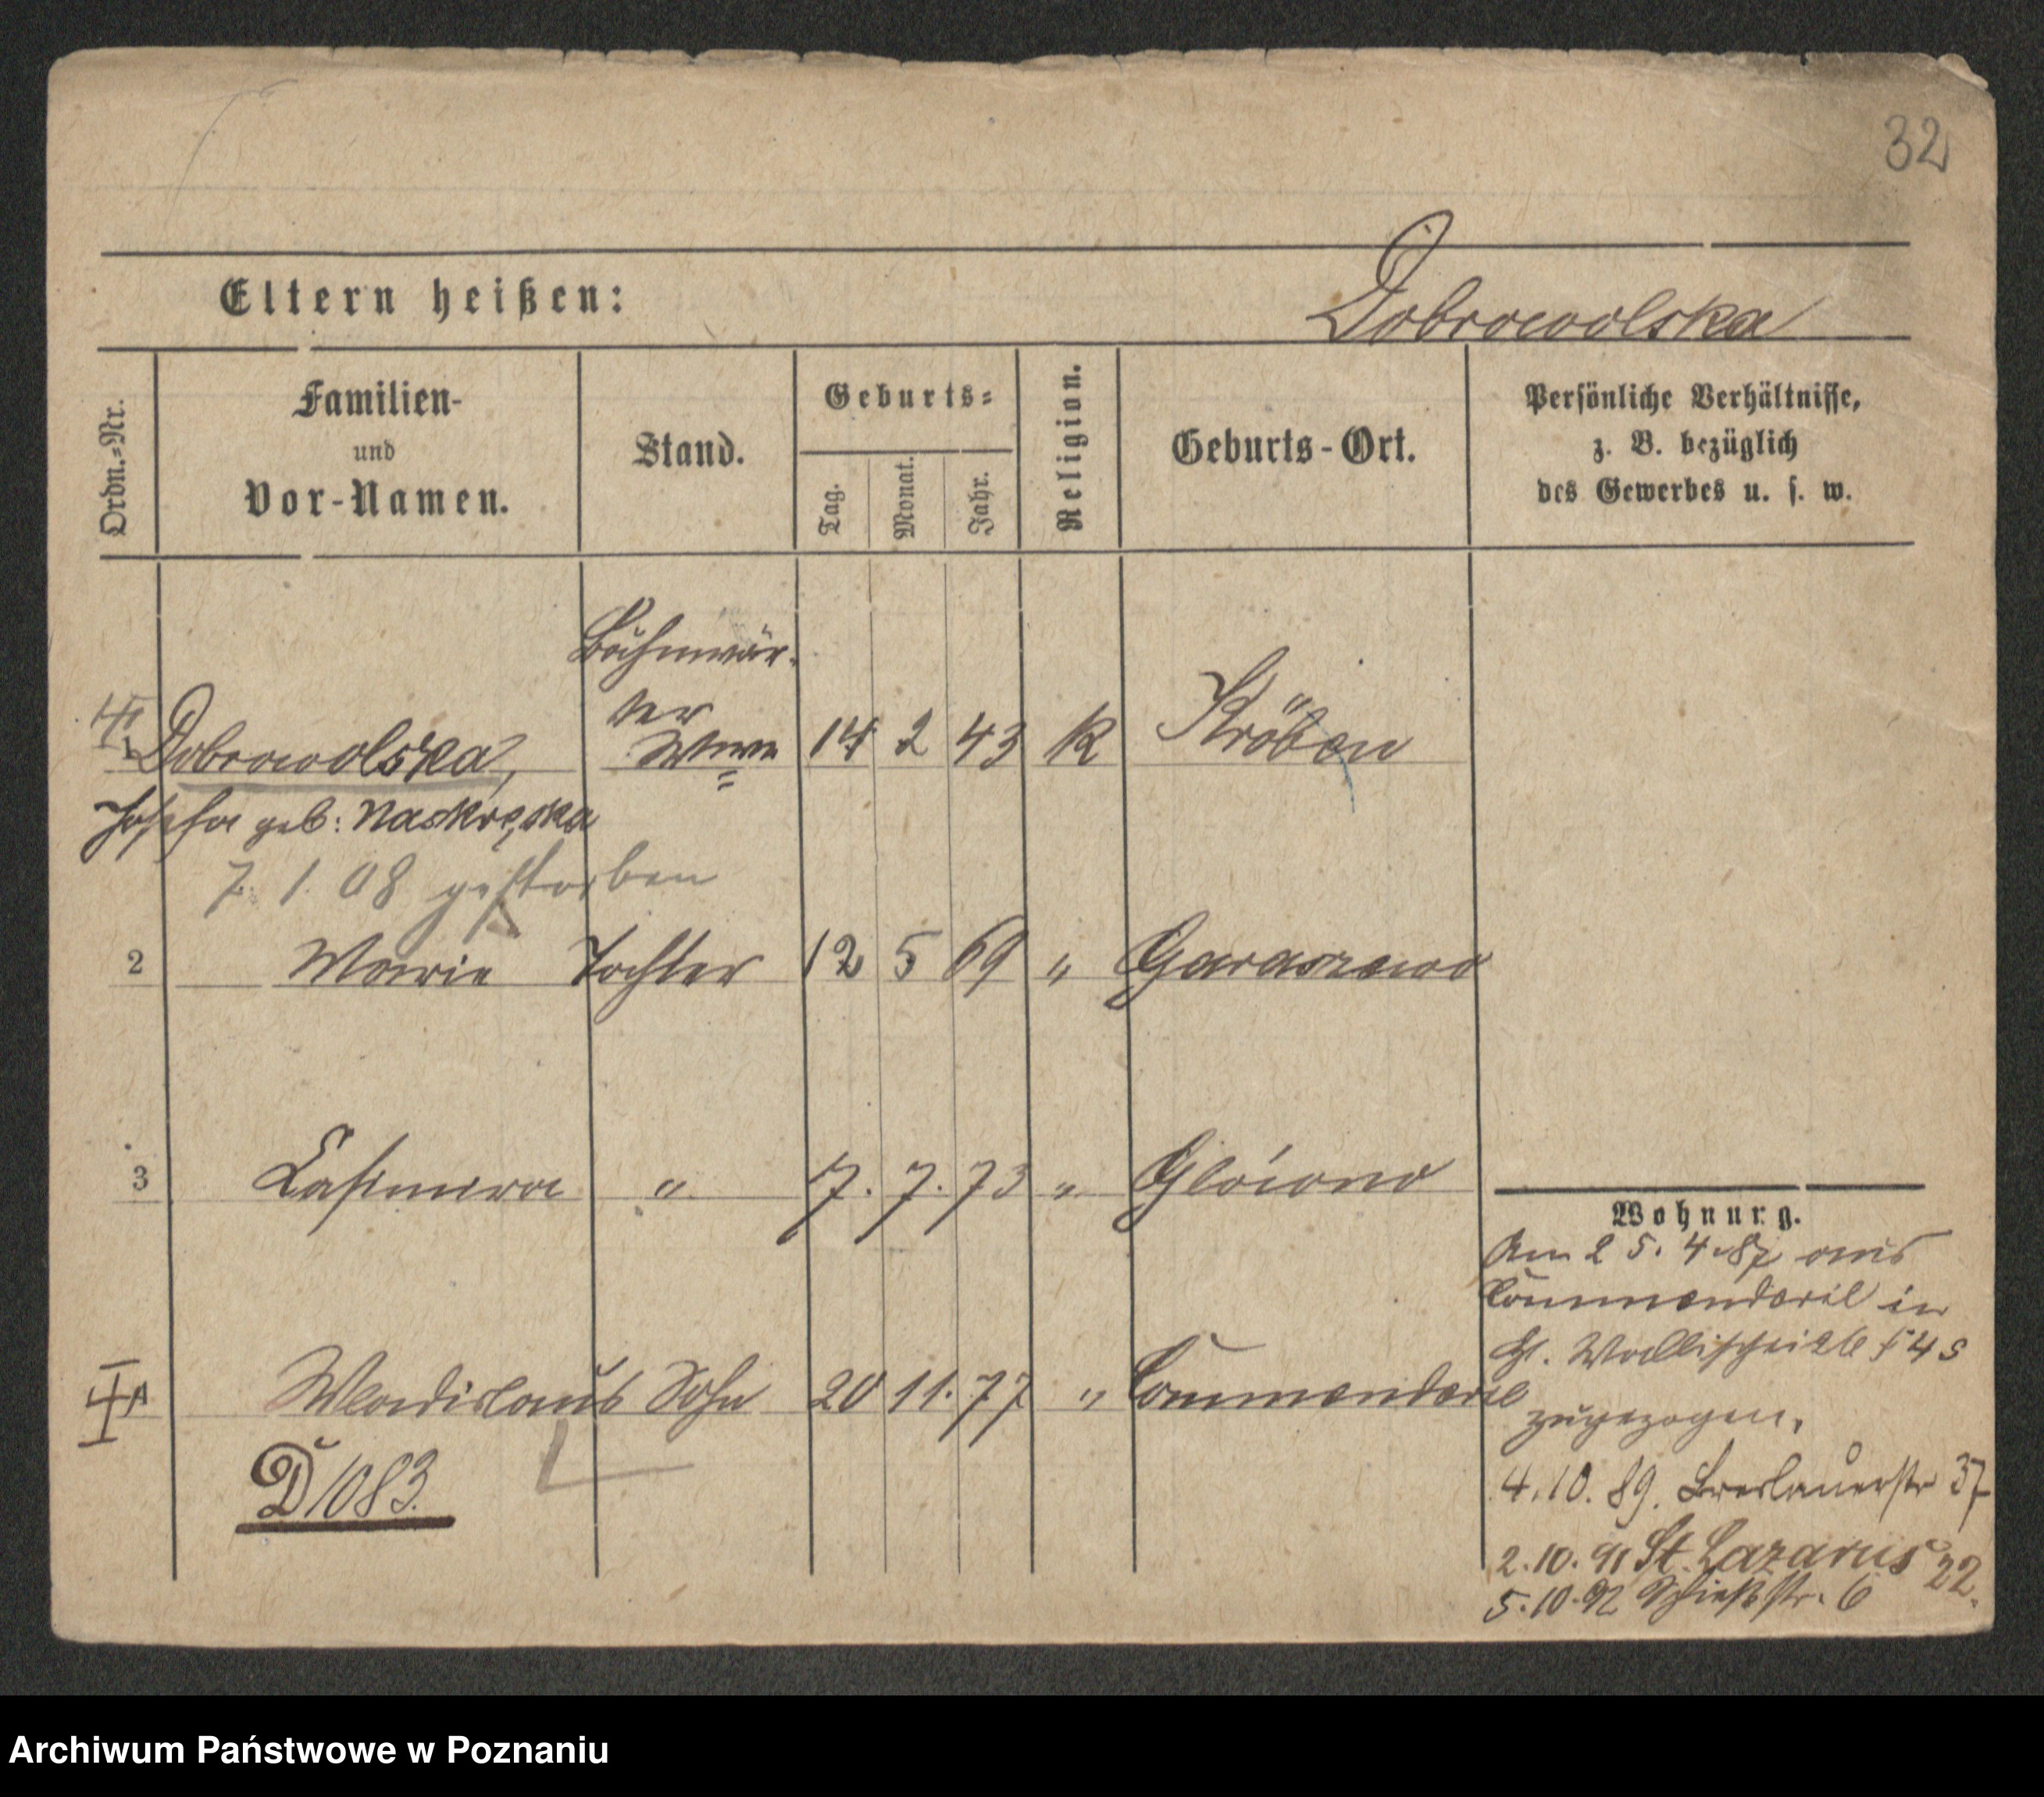 32
Eltern heißen:
Dobrowolska
Ordn.-Nr.
Familien-
und
Vor-Namen.
Stand.
Geburts-
Tag.
Monat.
Jahr.
Religion.
Geburts-Ort.
Persönliche Verhältnisse,
z. B. bezüglich
des Gewerbes u. s. w.
Bahnwär-
ter
Wwe
1 Dobrowolska, 14 2 43 K Kröben
Josefa geb: Naskręska
7. 1. 08 gestorben
2 Marie Tochter 12 5 69 " Garaszewo
3 Casimira " 7. 7. 73 " Glówno
Wladislaus Sohn 20 11. 77 " Commenderie
D 1083.
Wohnung.
Am 25. 4. 87 aus
Commenderie in
zugezogen.
4. 10. 89. Breslauerstr 37
2. 10. 91 St. Lazarus 22.
5. 10. 92 Schießstr. 6
Archiwum Państwowe w Poznaniu